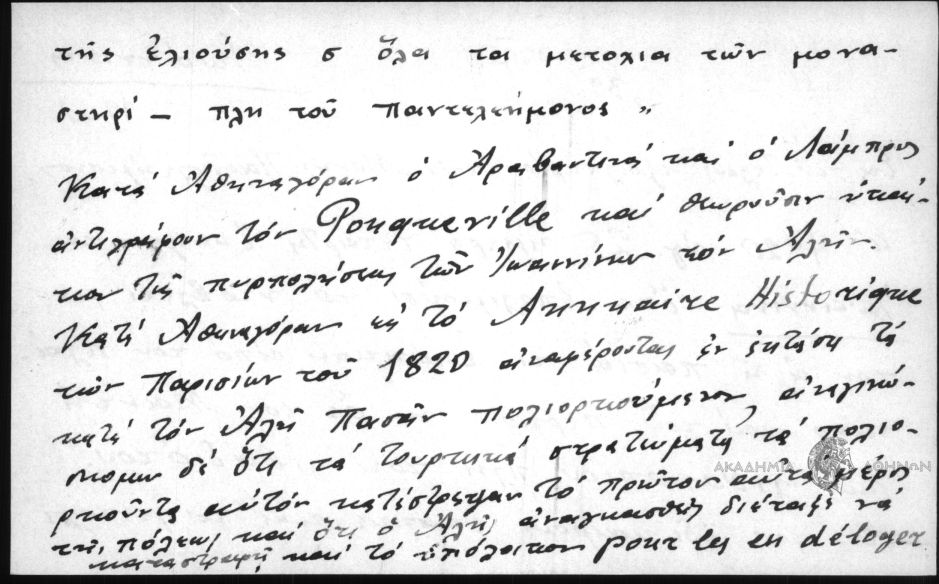 της ἐλιούσης σ ὅλα τα μετοχια τῶν μονα-
στηρί — πλη τοῦ Παντελεήμονος "
Κατά Ἀθηναγόραν ὁ Ἀραβαντινός καί ὁ Λάμπρος
ἀντιγράφουν τόν Pouqueville καί θεωροῦσιν
τῆς πυρπολήσεως τῶν Ἰωαννίνων τόν Ἀλῆν.
Κατά Ἀθηναγόραν τό Annuaire Historique
τῶν Παρισίων τοῦ 1820 ἀναφέροντας ἐν ἐκτάσει τά
κατά τόν Ἀλῆ Πασᾶν πολιορκούμενον, ἀναγινώ-
σκομεν δέ ὅτι τά τουρκικά στρατεύματα τά πολιο-
ρκοῦντα αὐτόν κατέστρεψαν τό πρῶτον μέρος
τῆς πόλεως καί ὅτι ὁ Ἀλῆς ἀναγκασθείς διέταξε νά
καταστραφῇ καί τό ὑπόλοιπον pour les en déloger
ΑΚΑΔΗΜΙΑ ΑΘΗΝΩΝ